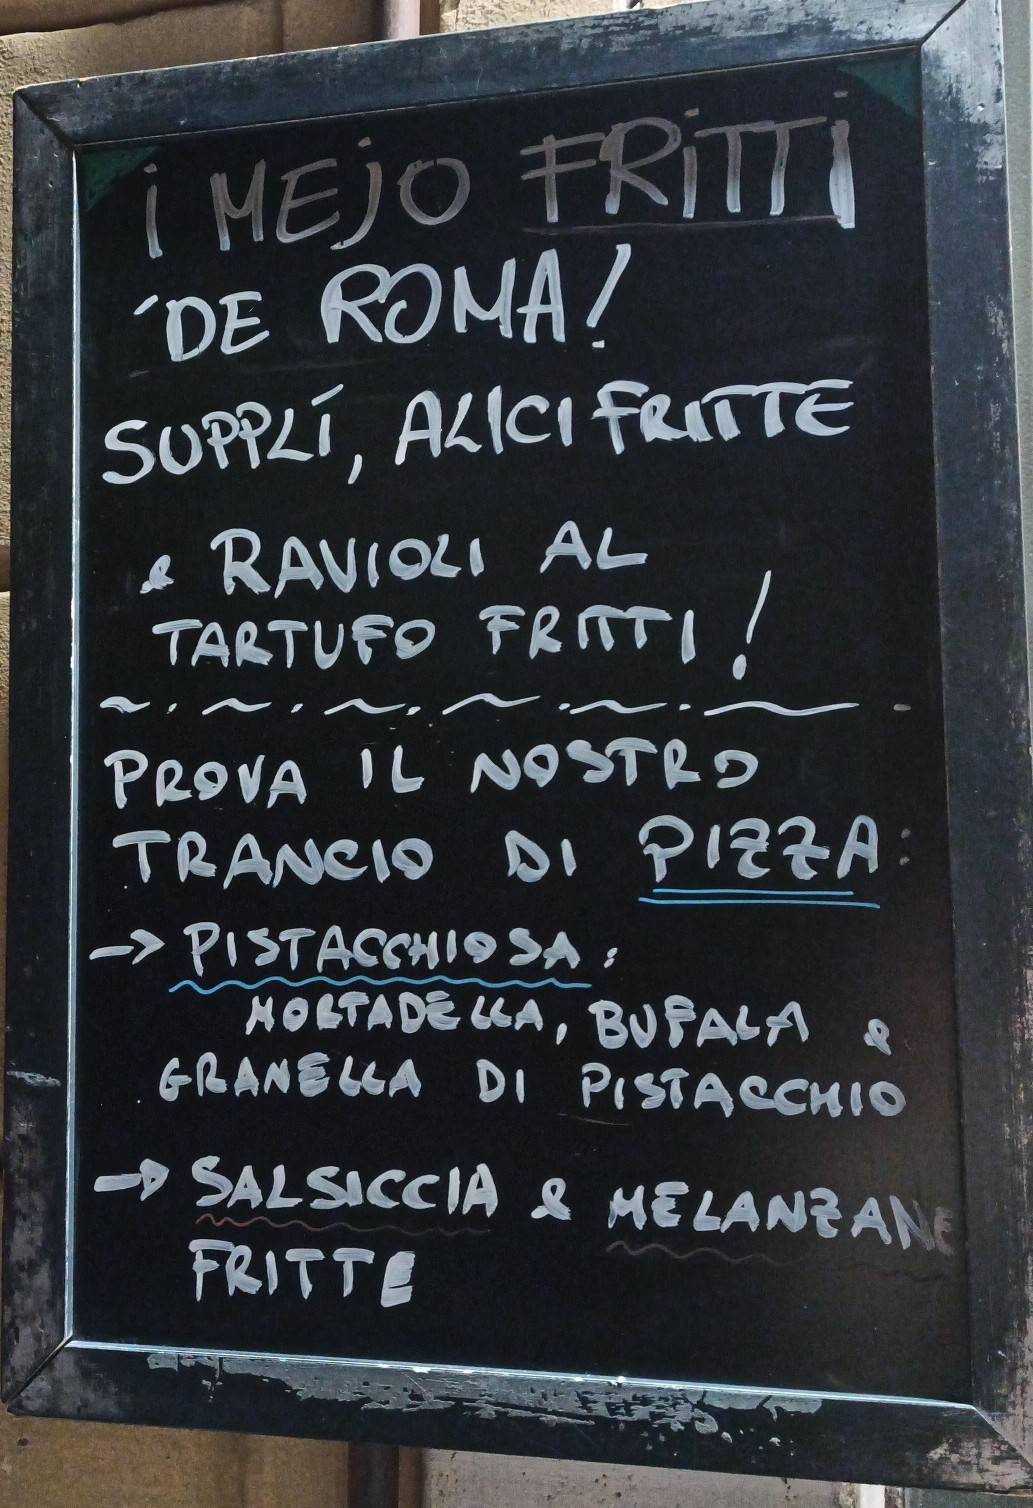 i MEjO FRiTTi
'DE ROMA!
SUPPLÍ, ALICI FRITTE
& RAVIOLI AL
TARTUFO FRITTI!
~.~.~.~.~.~-
PROVA IL NOSTRO
TRANCIO DI PIZZA:
→ PISTACCHIOSA:
MORTADELLA, BUFALA &
GRANELLA DI PISTACCHIO
→ SALSICCIA & MELANZANE
FRITTE